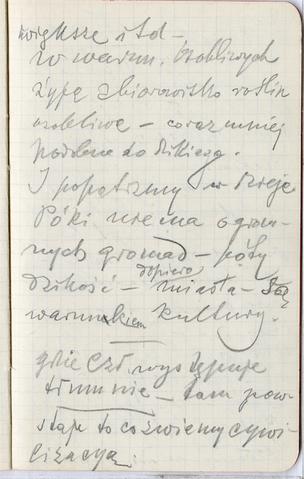 większe itd —
W warun. osobliwych
żyje zbiorowisko roślin
osobliwe — coraz mniej
podobne do dzikiego.
I popatrzmy w dzieje
Póki nie ma ogrom-
nych gromad — póty
dzikość — dopiero miasta — są
warunkiem kultury.
gdzie czł. występuje
tłumnie — tam pow-
staje to co zwiemy cywi-
lizacyą.